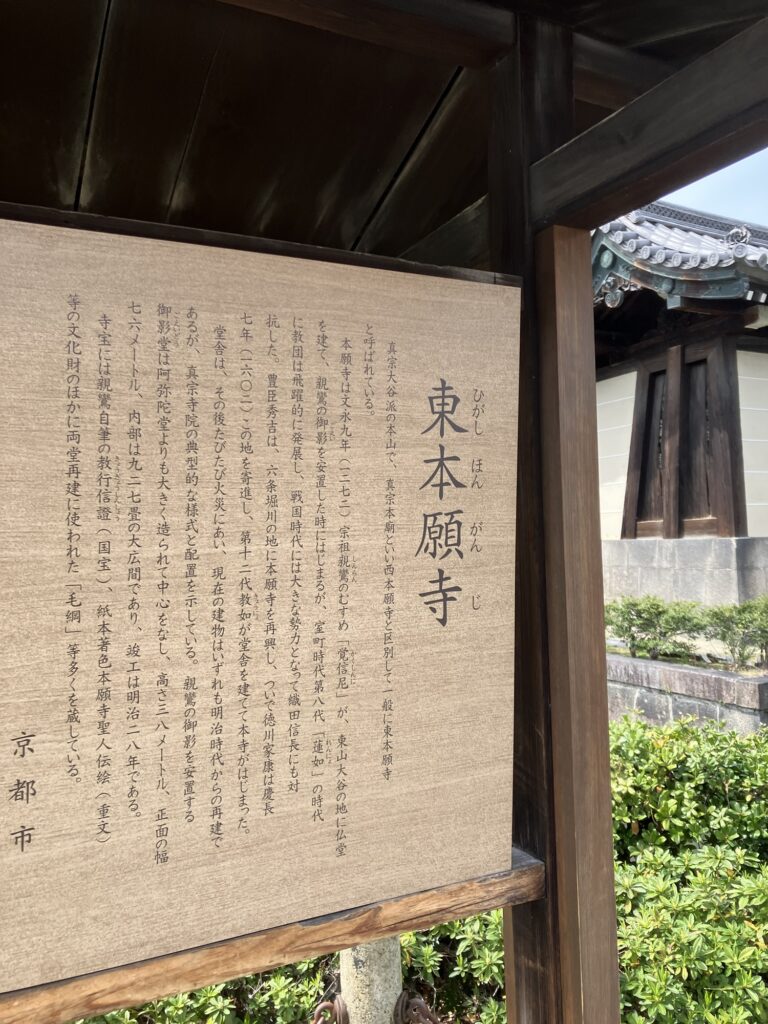 東本願寺
ひがし ほん がん じ
真宗大谷派の本山で、真宗本廟といい西本願寺と区別して一般に東本願寺
と呼ばれている。
本願寺は文永九年(一二七二)宗祖親鸞のむすめ「覚信尼」が、東山大谷の地に仏堂
を建て、親鸞の御影を安置した時にはじまるが、室町時代第八代「蓮如」の時代
に教団は飛躍的に発展し、戦国時代には大きな勢力となって織田信長にも対
抗した。豊臣秀吉は、六条堀川の地に本願寺を再興し、ついで徳川家康は慶長
七年(一六〇二)この地を寄進し、第十二代教如が堂舎を建てて本寺がはじまった。
堂舎は、その後たびたび火災にあい、現在の建物はいずれも明治時代からの再建で
あるが、真宗寺院の典型的な様式と配置を示している。親鸞の御影を安置する
御影堂は阿弥陀堂よりも大きく造られて中心をなし、高さ三八メートル、正面の幅
七六メートル、内部は九二七畳の大広間であり、竣工は明治二八年である。
寺宝には親鸞自筆の教行信證(国宝)、紙本著色本願寺聖人伝絵(重文)
等の文化財のほかに両堂再建に使われた「毛綱」等多くを蔵している。
京都市